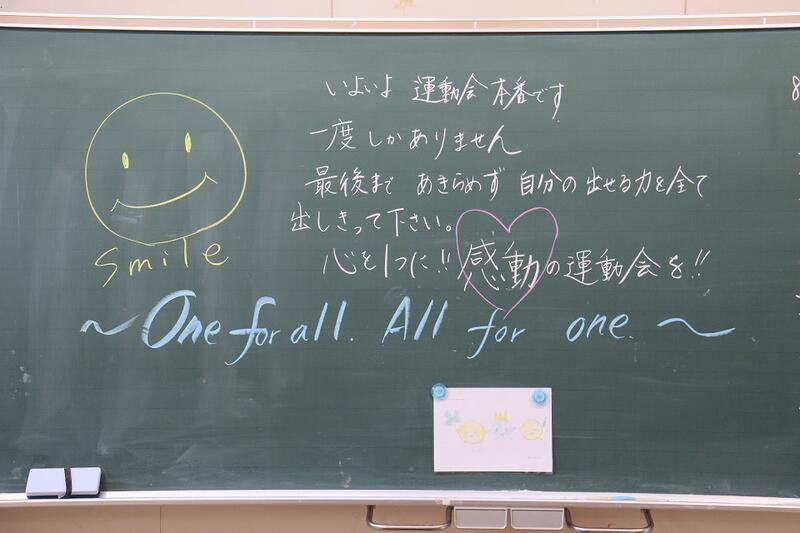 いよいよ 運動会本番です
一度しかありません
最後まで あきらめず 自分の出せる力を全て
出しきって下さい。
心を1つに!! 感動の運動会を!!
smile
~One for all. All for one.~